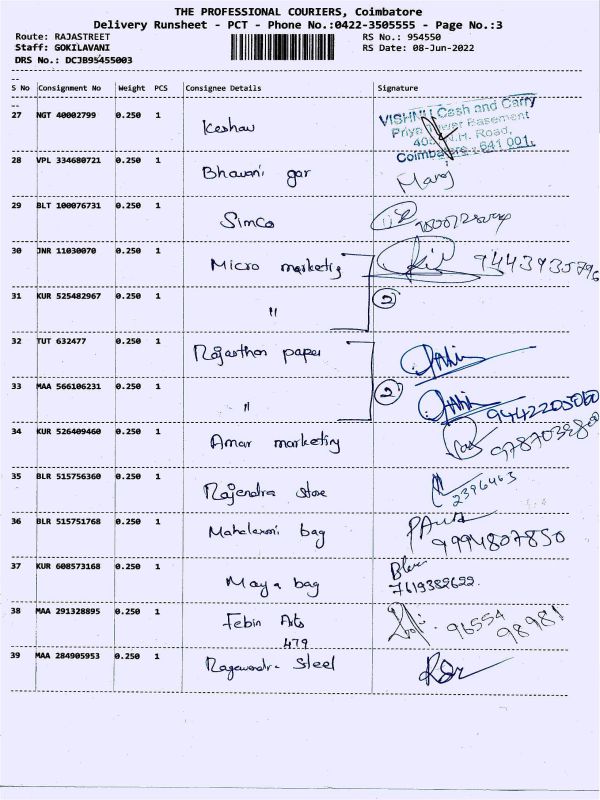 THE PROFESSIONAL COURIERS, Coimbatore
Delivery Runsheet - PCT - Phone No.:0422-3505555 - Page No.:3
Route: RAJASTREET RS No.: 954550
Staff: GOKILAVANI RS Date: 08-Jun-2022
DRS No.: DCJB95455003
S No Consignment No Weight PCS Consignee Details Signature
27 NGT 40002799 0.250 1 Keshav
VISHNU Cash and Carry
Priya Tower Basement
N.H. Road,
Coimbatore - 641 001.
28 VPL 334680721 0.250 1 Bhavani gar Manoj
29 BLT 100076731 0.250 1 Simco
30 JNR 11030070 0.250 1 Micro marketing 9443935796
31 KUR 525482967 0.250 1 " 2
32 TUT 632477 0.250 1 Rajasthan paper
33 MAA 566106231 0.250 1 " 2 9442205060
34 KUR 526409460 0.250 1 Amar marketing
35 BLR 515756360 0.250 1 Rajendra store 2396463
36 BLR 515751768 0.250 1 Mahalaxmi bag 9994807850
37 KUR 608573168 0.250 1 Maya bag 7619382622
38 MAA 291328895 0.250 1 Febin Arts 96554 98981
479
39 MAA 284905953 0.250 1 Ragavendra Steel